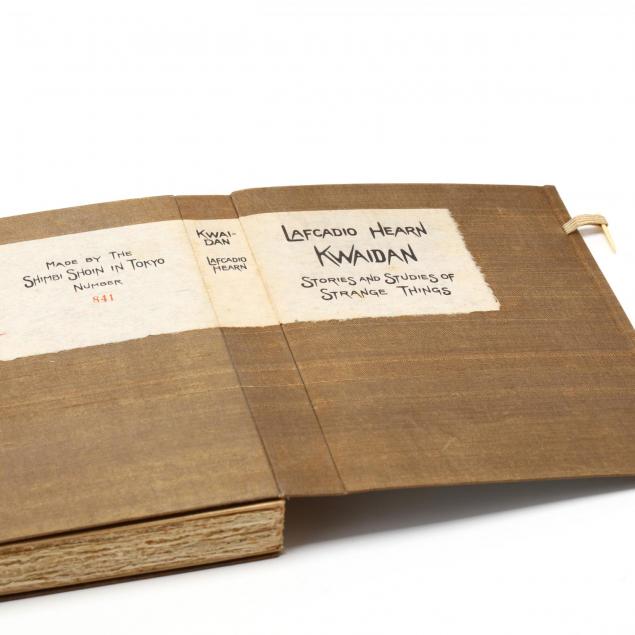 MADE BY THE
SHIMBI SHOIN IN TOKYO
NUMBER
841
KWAI-
DAN
LAFCADIO
HEARN
LAFCADIO HEARN
KWAIDAN
STORIES AND STUDIES OF
STRANGE THINGS